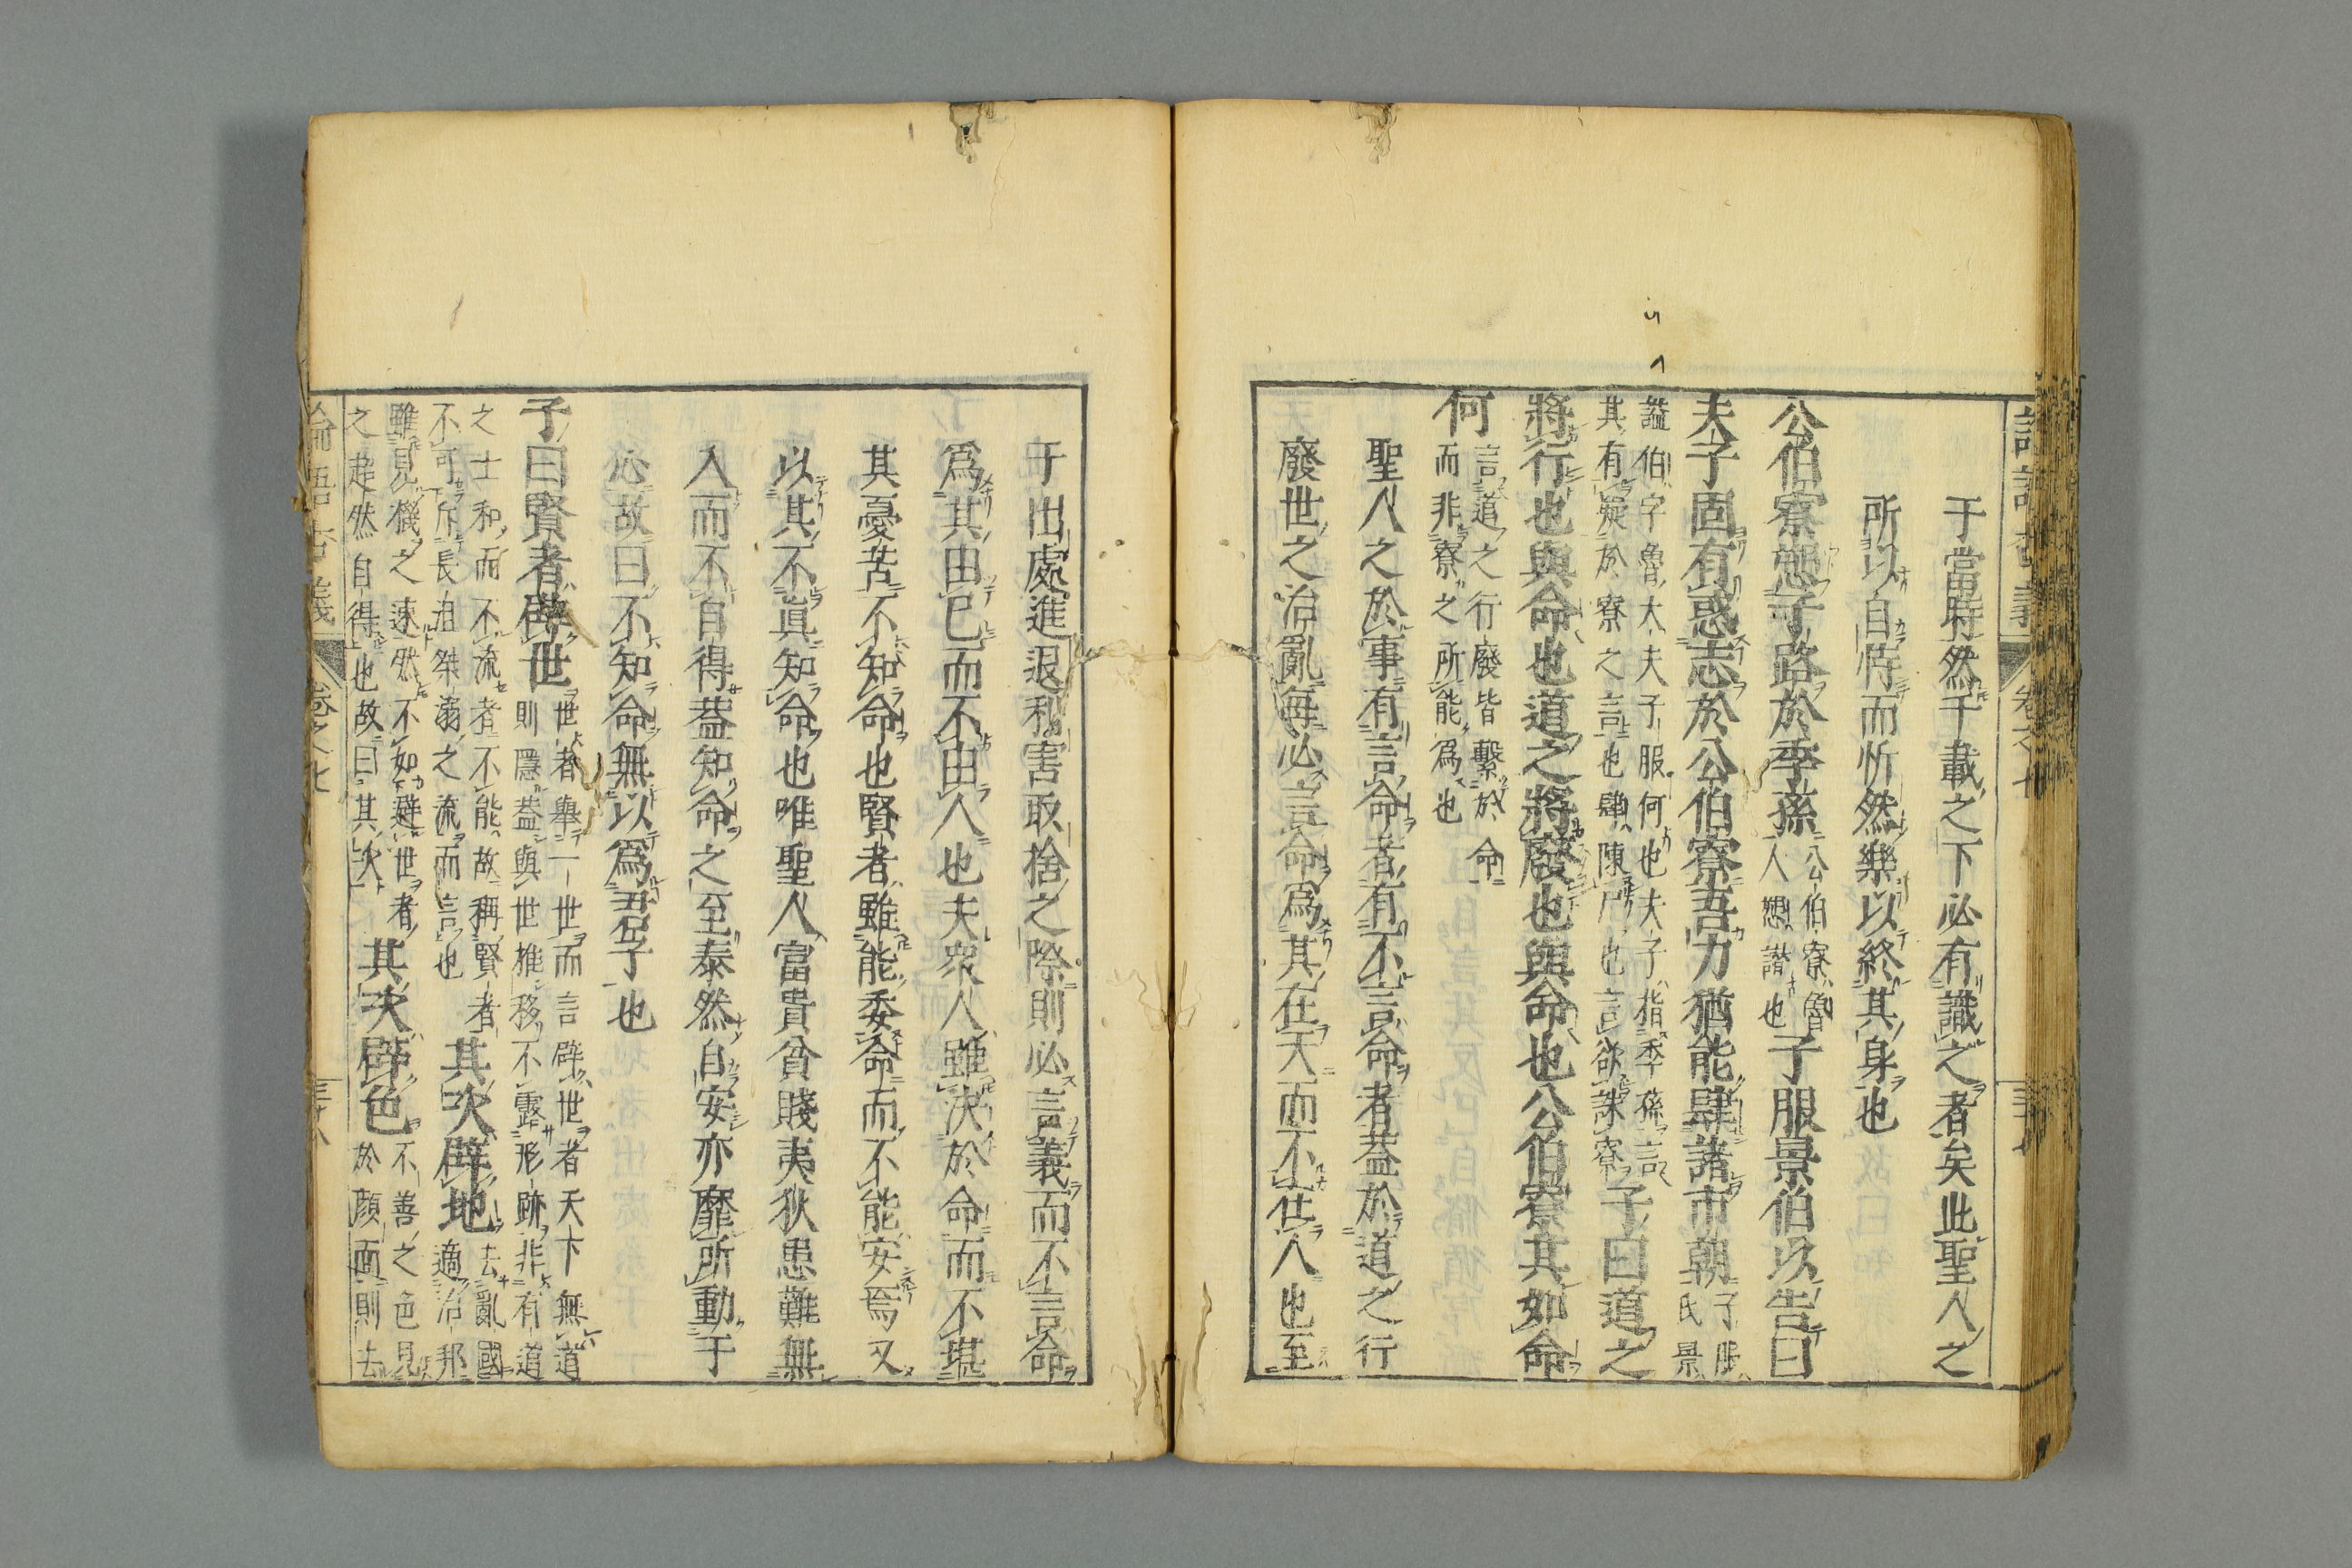 于當時然千載之下必有識之者矣此聖人之
所以自恃而忻然樂以終其身也
公伯寮愬子路於季孫公伯寮魯人愬譖也子服景伯以告曰
夫子固有惑志於公伯寮吾力猶能肆諸市朝子服氏景
謚伯字魯大夫子服何也夫子指季孫言其有疑於寮之言也肆陳尸也言欲誅寮子曰道之
將行也與命也道之將廢也與命也公伯寮其如命
何言道之行廢皆繫於命而非寮之所能爲也
聖人之於事有言命者有不言命者葢於道之行
廢世之治亂每必言命爲其在天而不在人也至
于出處進退利害取捨之際則必言義而不言命
爲其由己而不由人也夫衆人雖決於命而不堪
其憂苦不知命也賢者雖能委命而不能安焉又
以其不眞知命也唯聖人富貴貧賤夷狄患難無
入而不自得葢知命之至泰然自安亦靡所動于
心故曰不知命無以爲君子也
子曰賢者辟世世者舉一世而言辟世者天下無道則隱葢與世推移不露形跡非有道
之士和而不流者不能故稱賢者其次辟地去亂國適治邦
不可斥長沮桀溺之流而言也
雖見機之速然不如避世者其次辟色不善之色見於顏面則去
之超然自得也故曰其次
論語古義 卷之七 三十八